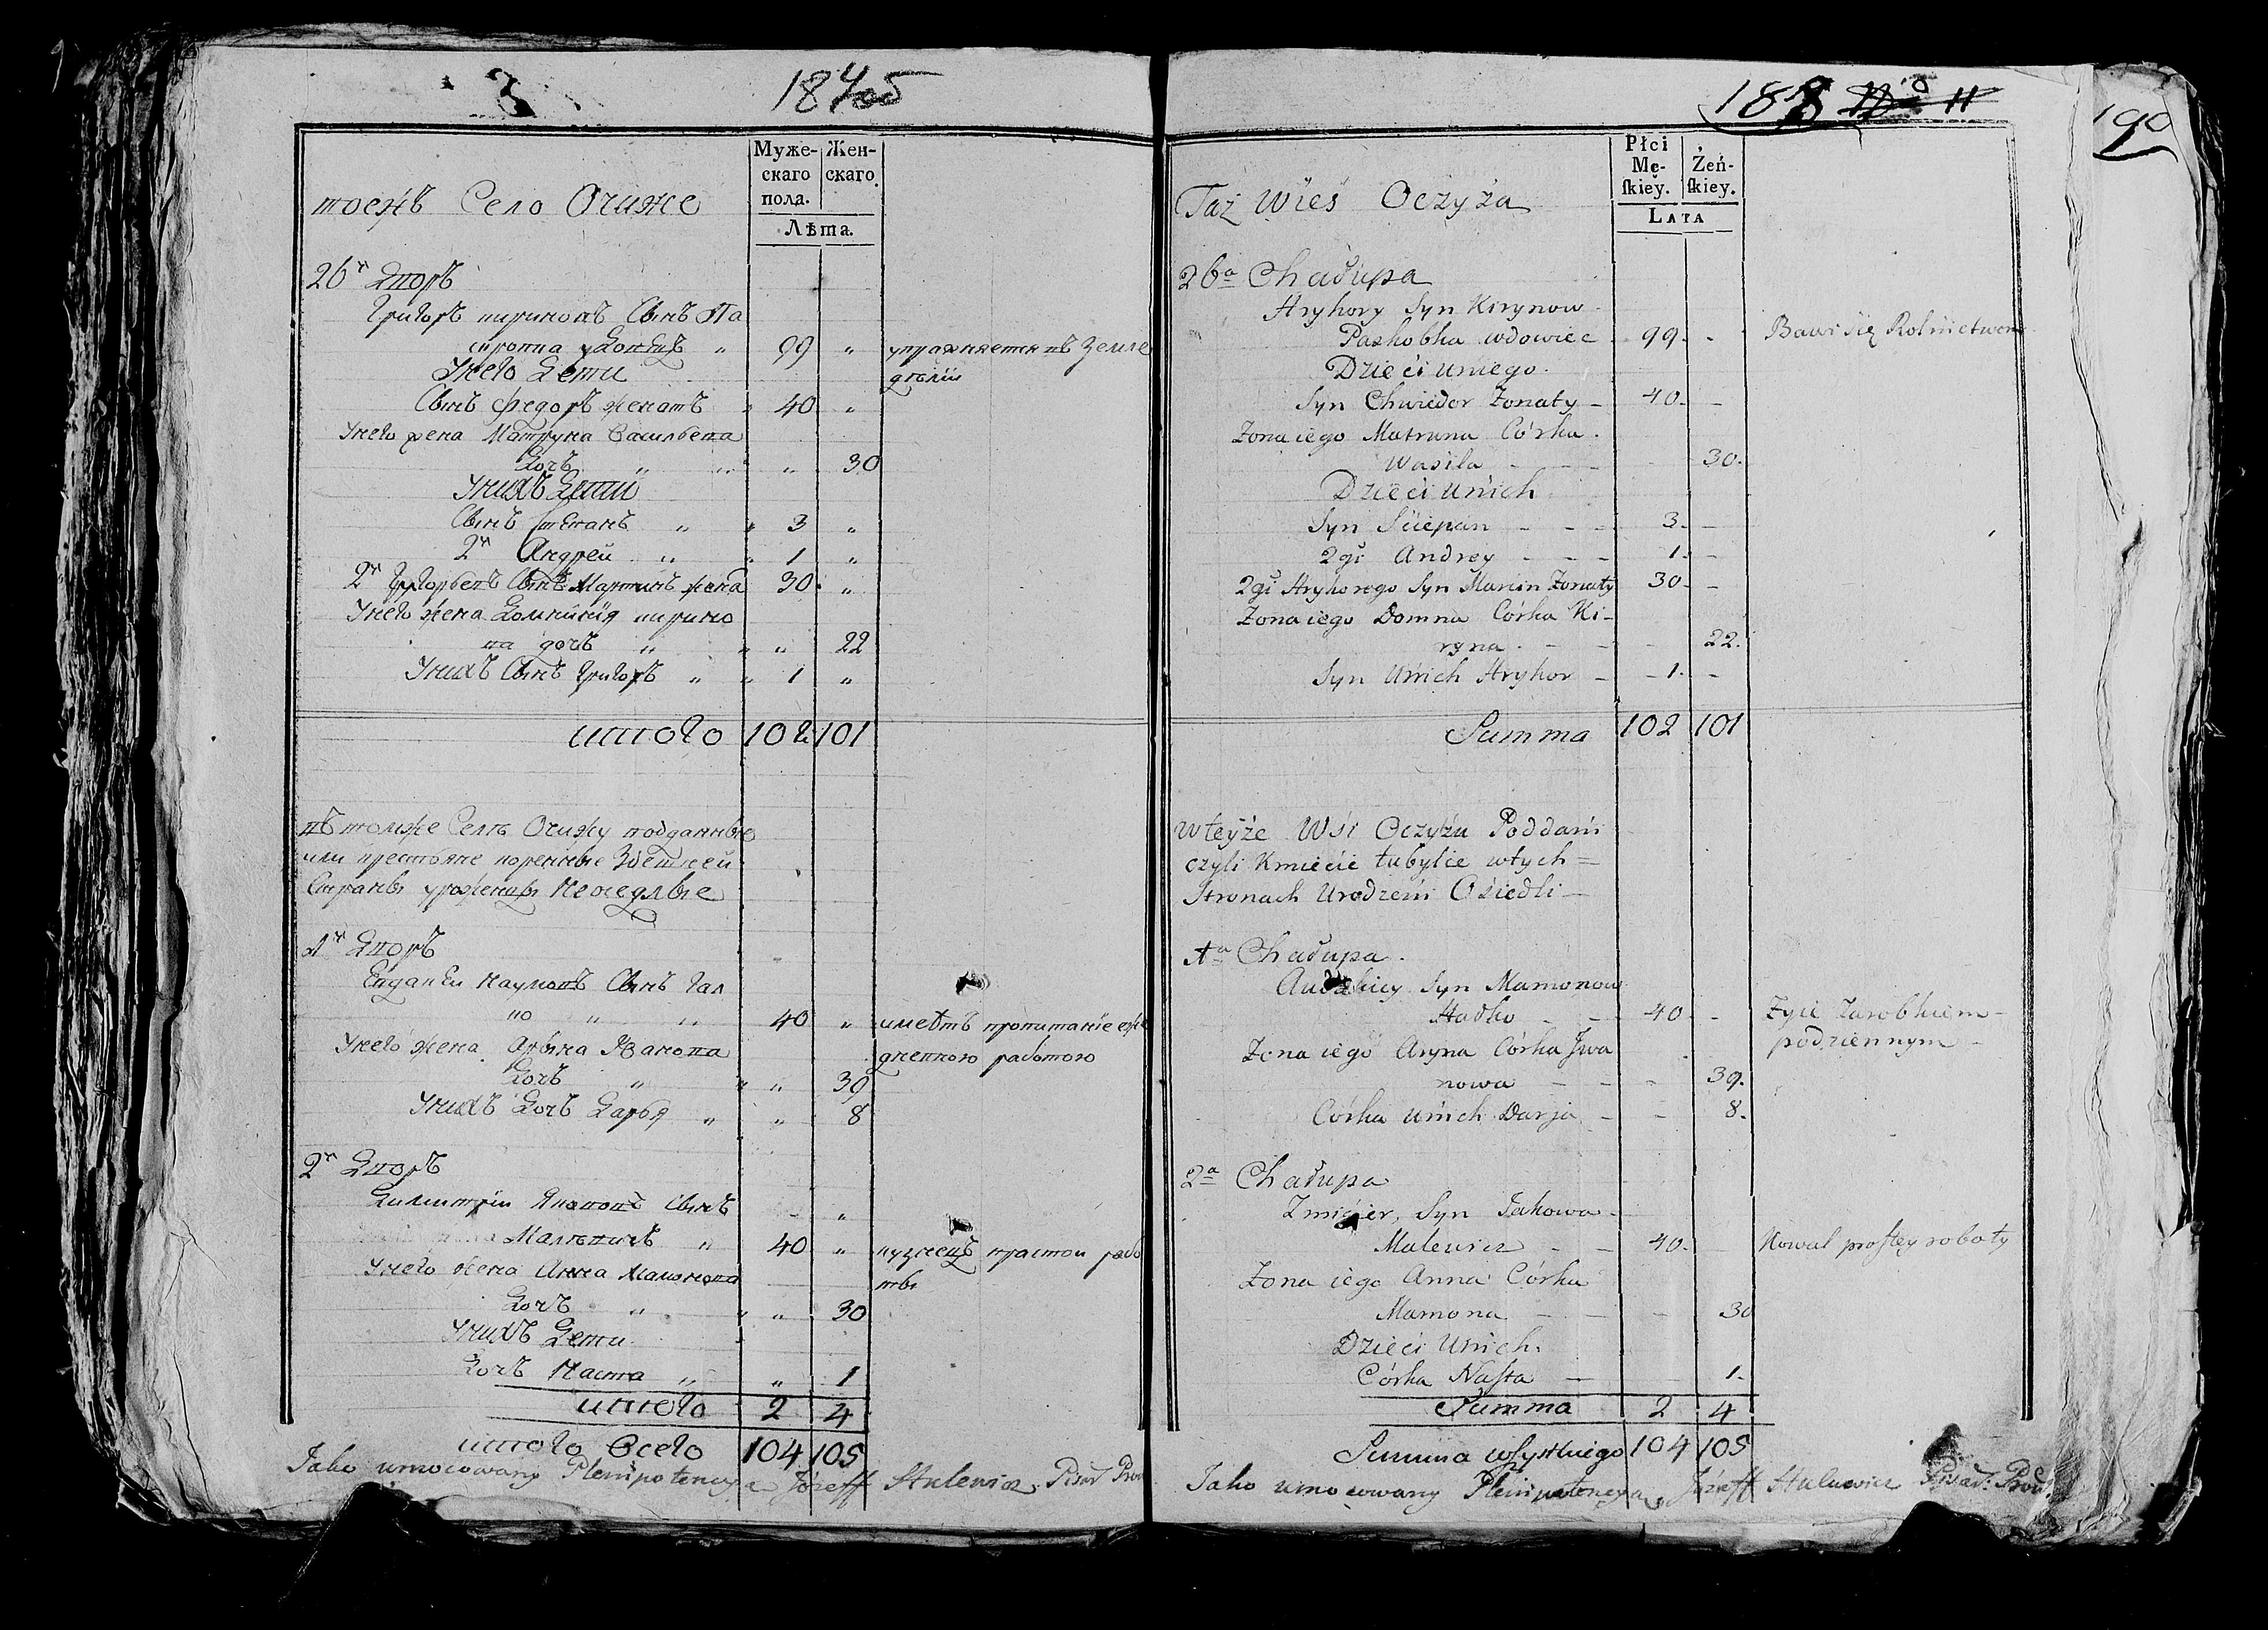 3
184об
188
190
Муже-
скаго
пола.
Жен-
скаго.
Лѣта.
тоежъ Село Очиже
26й Дворъ
Григоръ кириновъ Сынъ Па
99 „ упражняется въ Земле
дѣлiи
У него Дети
Сынъ Федоръ женатъ „ 40 „
У него жена Матруна Васильева
Дочъ „ „ „ 30
У нихъ Дети
Сынъ Степанъ „ „ 3 „
2й Андрей „ „ 1 „
2й Григорьевъ Сынъ Мартинъ жена 30 „
У него жена Домникия кирино
ва дочъ „ „ „ 22
У нихъ Сынъ Григоръ „ „ 1 „
итого 102 101
въ томже Селѣ Очижу подданные
или крестьяне коренные Здешней
Страны уроженцы Неоседлые
1й Дворъ
Наумовъ Сынъ Гал
ко „ „ 40 „ имеетъ пропитание еже
дневною работою
У него жена Арына Яванова
Дочъ „ „ „ 39
У нихъ Дочъ Дарья „ „ 8
2й Дворъ
Димитрiи Якововъ Сынъ „
Малевичъ „ 40 „ кузнецъ простой рабо
ты
У него жена Анна Мамонова
Дочъ „ „ „ 30
У нихъ Дети
Дочъ Наста „ „ 1
итого 2 4
итого Всего 104 105
Jako umocowany Plenipotencyą Józeff Hulewicz. Pisarz Prow
Płci
Mę-
ſkiey.
Żeń-
ſkiey.
Lata
Taż Wieś Oczyża
26a Chałupa
Hryhory Syn Kirynow
Pashobka wdowiec 99. - Bawi się Rolnictwem
Dzieci u niego.
Syn Chwiedor Żonaty - 40. -
Żona iego Matruna Córka.
Wasila - - - - 30.
Dzieci u nich
Syn Sciepan - - - 3. -
2gi Andrey - - - 1. -
2gi Hryhorego Syn Marcin Żonaty 30. -
Żona iego Domna Córka Ki-
ryna. - - - 22.
Syn u nich Hryhor - - 1. -
Summa 102 101
w teyże Wsi Oczyżu Poddani
czyli Kmiecie tubylce w tych =
Stronach Urodzeni Osiedli -
1a Chałupa.
Syn Mamonow
Hadko - - 40. - Żyie Zarobkiem -
podziennym -
Żona iego Aryna Córka Jwa
nowa - - - 39.
Córka u nich Darja - - 8.
2a Chałupa
Zmicier, Syn Jakowa -
Malewicz - - 40. Kowal proſtey roboty
Żona iego Anna Córka
Mamona - - - 30
Dzieci u nich.
Córka Naſta - 1.
Summa 2 4
Summa wſzystkiego 104 105
Jako umocowany Plenipotencyą Józeff Hulewicz Pisarz Prow.